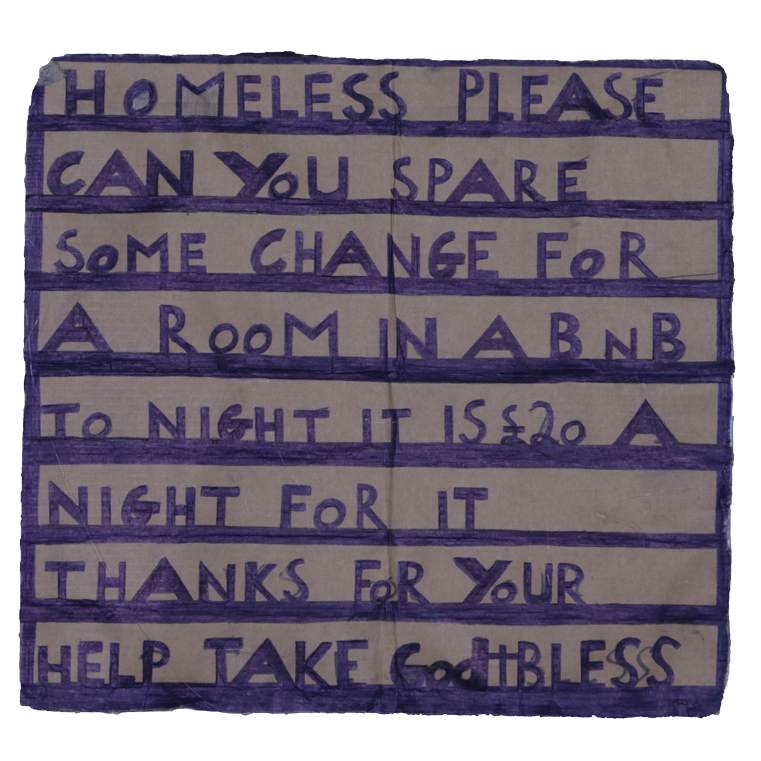 HOMELESS PLEASE
CAN YOU SPARE
SOME CHANGE FOR
A ROOM IN A BNB
TO NIGHT IT IS £20 A
NIGHT FOR IT
THANKS FOR YOUR
HELP TAKE GOD BLESS